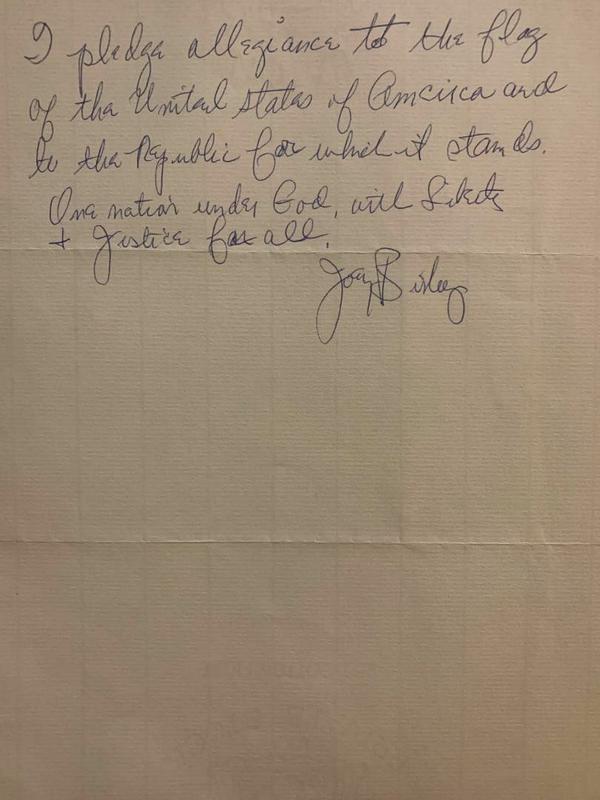 I pledge allegiance to the flag
of the United States of America and
to the Republic for which it stands.
One nation under God, with Liberty
+ Justice for all.
Joey